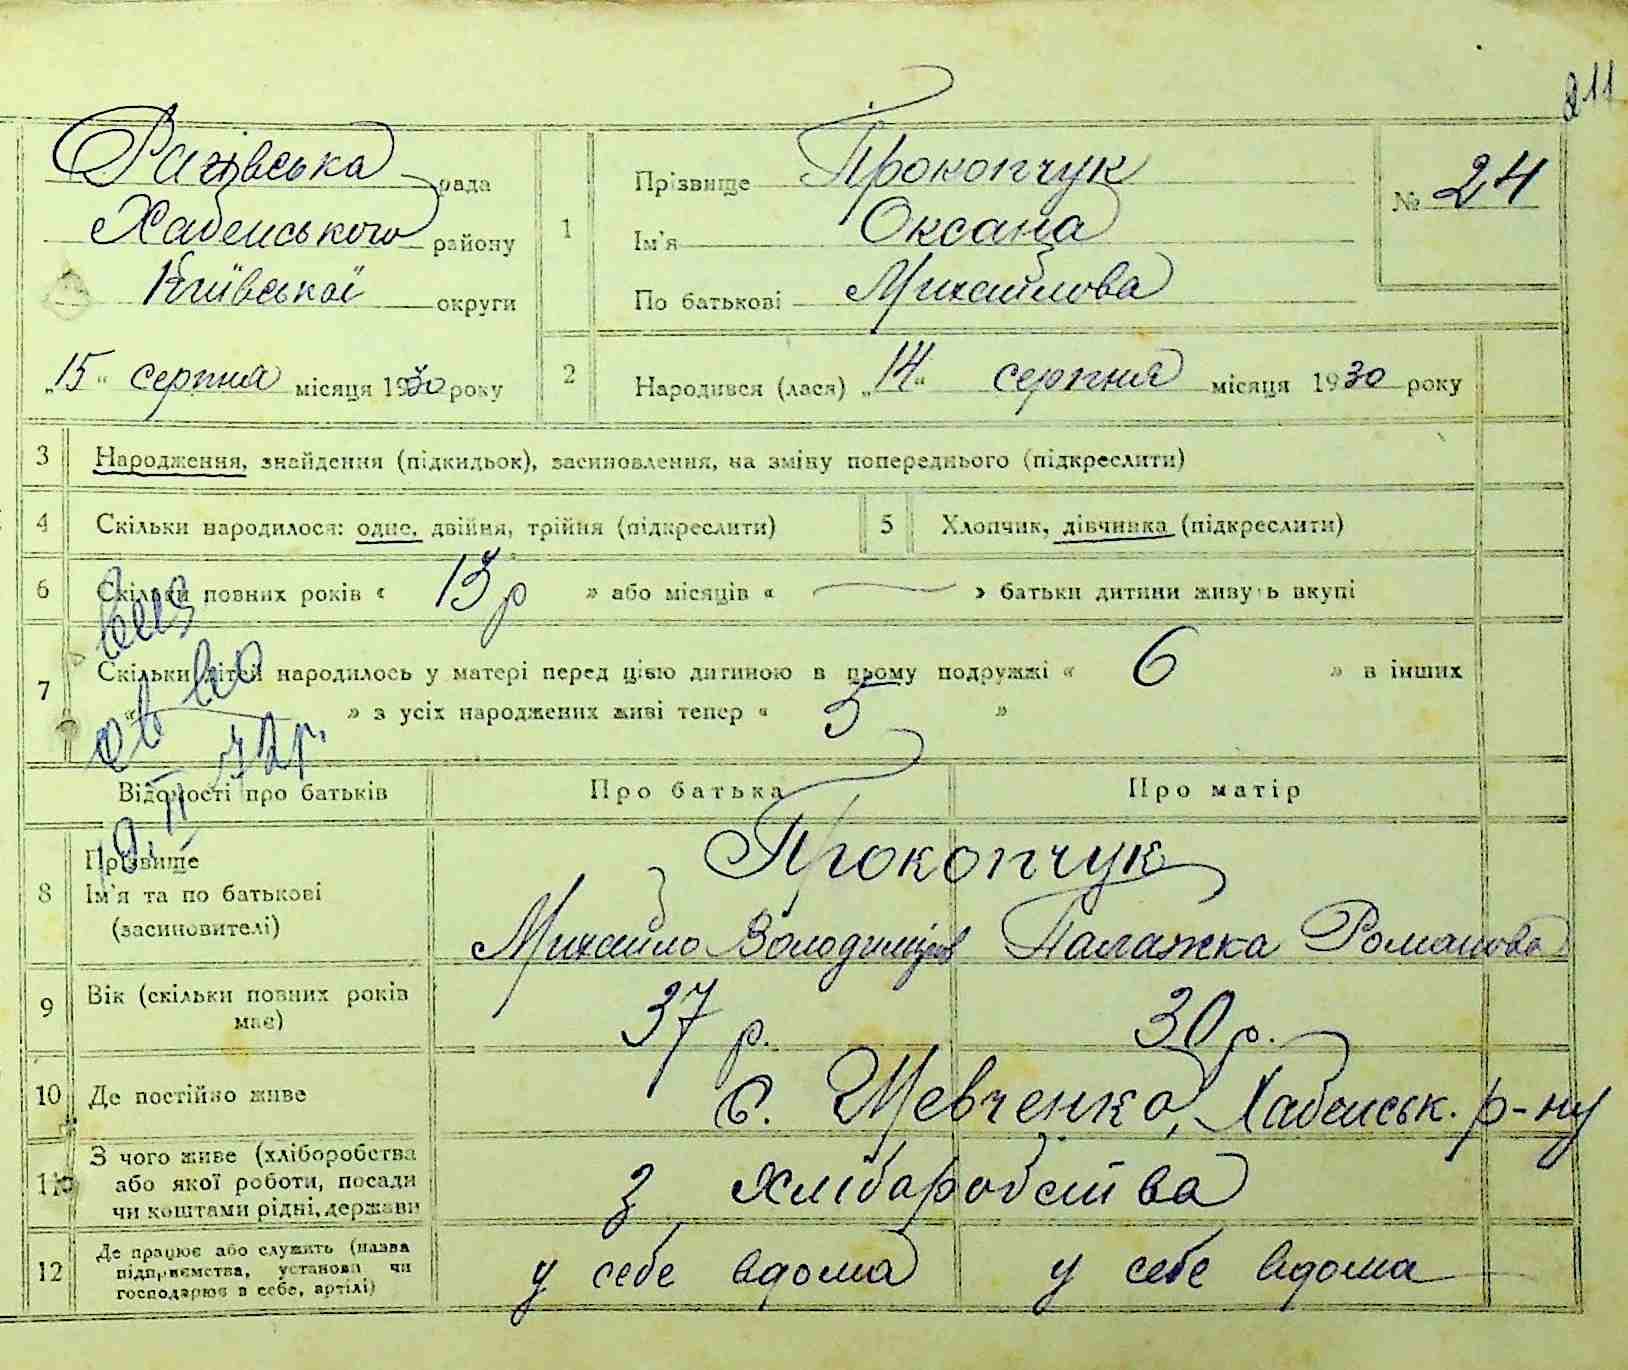 211
Рагівська рада
Хабенського району
Київської округи
„15“ серпня місяця 1930 року
1
Прізвище Прокопчук
Ім'я Оксана
По батькові Михайлова
№ 24
2
Народився (лася) „14“ серпня місяця 1930 року
3 Народження, знайдення (підкидьок), засиновлення, на зміну попереднього (підкреслити)
4 Скільки народилося: одне, двійня, трійня (підкреслити)
5 Хлопчик, дівчинка (підкреслити)
6 Скільки повних років « 13 р » або місяців « — » батьки дитини живуть вкупі
7 Скільки дітей народилось у матері перед цією дитиною в цьому подружжі « 6 » в інших
« — » з усіх народжених живі тепер « 5 »
72р.
Відомості про батьків
Про батька
Про матір
8 Прізвище
Ім'я та по батькові
(засиновителі)
Прокопчук
Михайло Володимиров
Палажка Романова
9 Вік (скільки повних років
має)
37 р.
30 р.
10 Де постійно живе
с. Шевченко, Хабенськ. р-ну
11 З чого живе (хліборобства
або якої роботи, посади
чи коштами рідні, держави
з хліборобства
12 Де працює або служить (назва
підприємства, установи чи
господарює в себе, артілі)
у себе вдома
у себе вдома